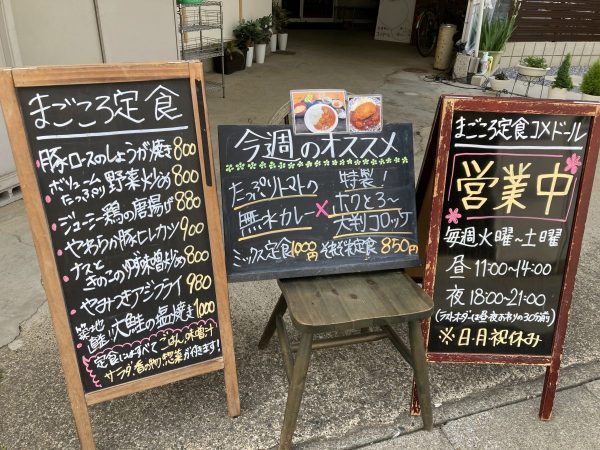 まごころ定食
豚ロースのしょうが焼き 800
ボリュームたっぷり 野菜炒め 800
ジューシー鶏の唐揚げ 880
やわらか豚ヒレカツ 900
ナスときのこの豚味噌炒め 800
やみつきアジフライ 980
築地 鮭 大鮭の塩焼き 1000
定食にはすべて ごはん、味噌汁
サラダ、香の物、惣菜が付きます!
今週のオススメ
たっぷりトマトの 特製!
無水カレー × ホクとろ〜
大判コロッケ
ミックス定食1000円 それぞれ定食850円
まごころ定食コメドール
営業中
毎週火曜〜土曜
昼 11:00〜14:00
夜 18:00〜21:00
(ラストオーダーは昼夜おわりの30分前)
※日・月・祝休み